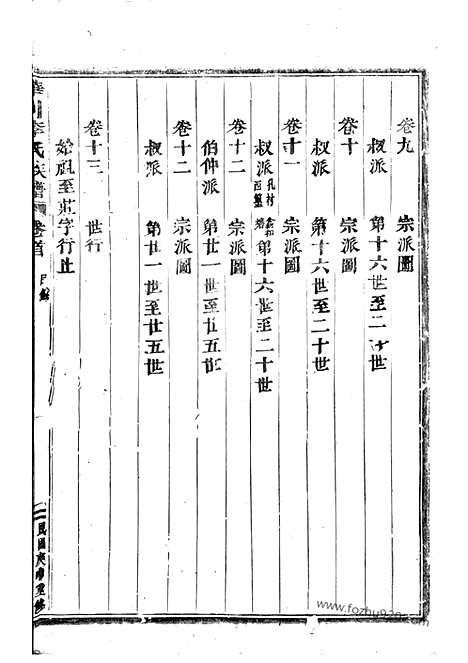 卷九 宗派圖
叔派 第十六世至二十世
卷十 宗派圖
叔派 第十六世至二十世
卷十一 宗派圖
叔派 孔村 西盤 第十六世至二十世
卷十二 宗派圖
伯仲派 第廿一世至廿五世
卷十二 宗派圖
叔派 第廿一世至廿五世
卷十三 世行
始祖至荘字行止
李氏族譜 卷首 目錄
民國庚 重修
www.fozhu920.com